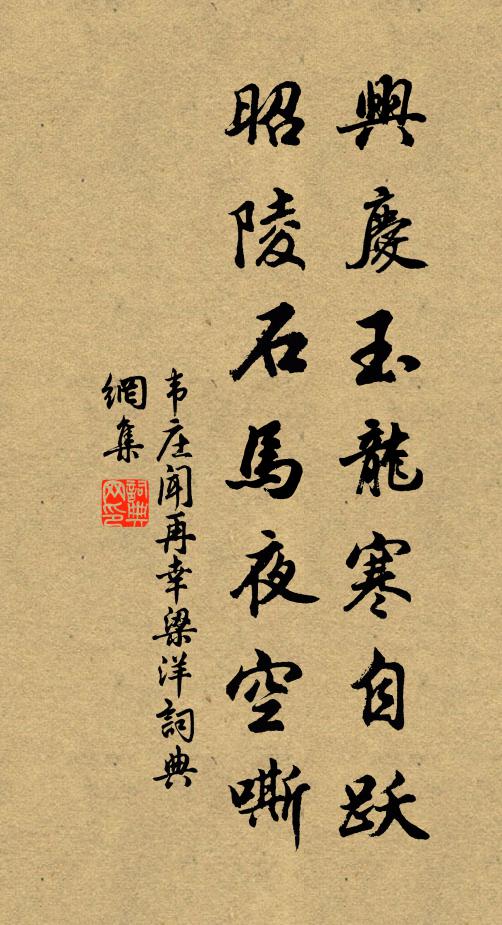 興慶玉龍寒自跃
昭陵石馬夜空嘶
韦庄闻再幸梁洋詞典
網集
詞典網印